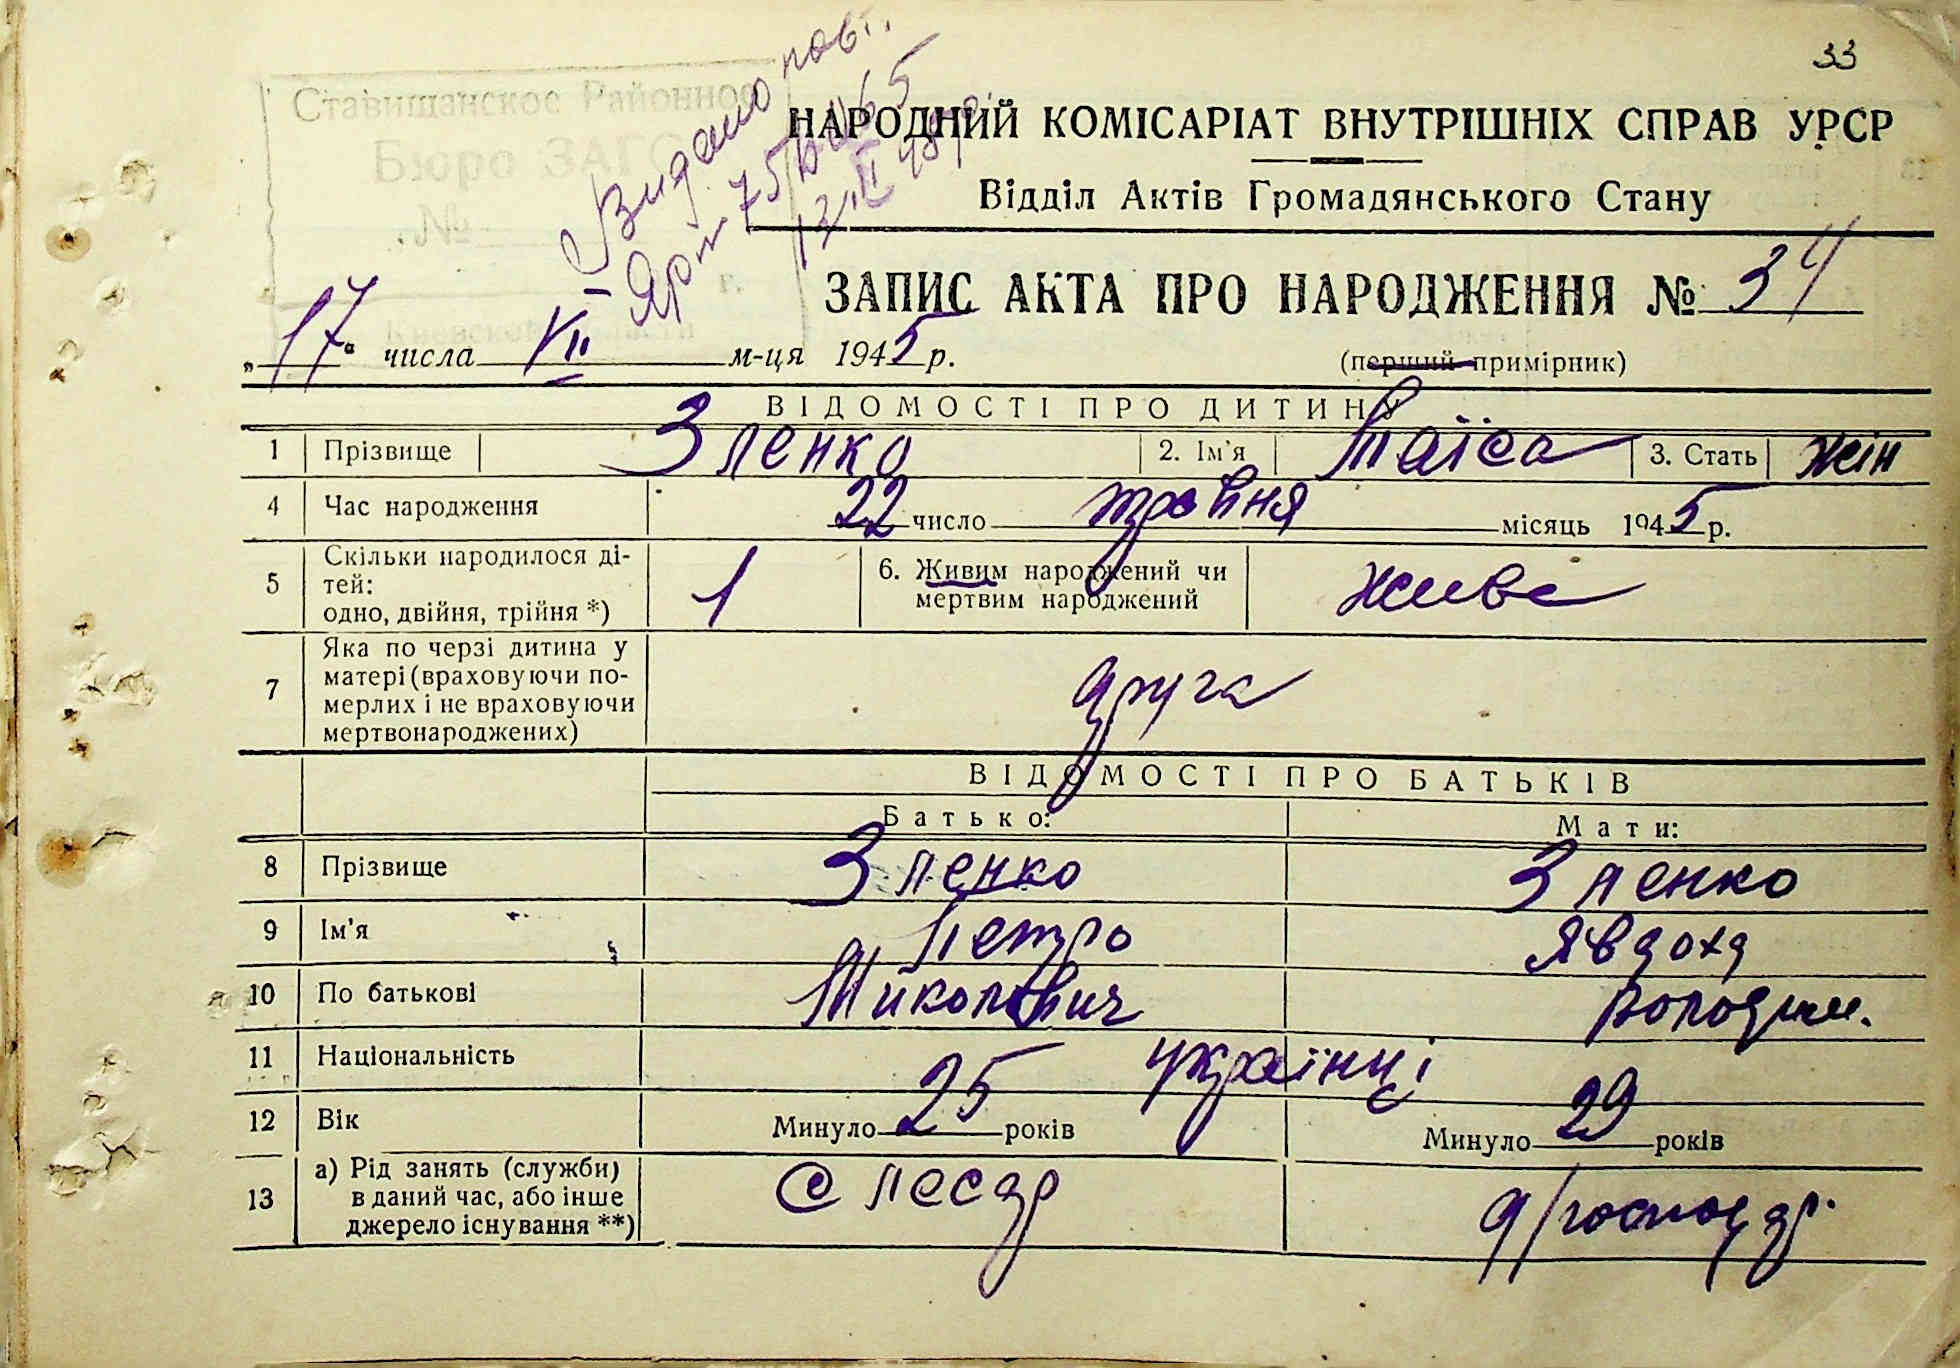 33
Ставищанское Районное
Бюро ЗАГС
№
г.
Киевской области
Видано повт.
75
НАРОДНИЙ КОМІСАРІАТ ВНУТРІШНІХ СПРАВ УРСР
Відділ Актів Громадянського Стану
ЗАПИС АКТА ПРО НАРОДЖЕННЯ № 34
„17“ числа VII м-ця 1945 р. (перший примірник)
ВІДОМОСТІ ПРО ДИТИНУ
1 Прізвище Зленко 2. Ім'я Таїса 3. Стать жін
4 Час народження 22 число травня місяць 1945 р.
5 Скільки народилося ді-
тей:
одно, двійня, трійня *) 1 6. Живим народжений чи
мертвим народжений живе
7 Яка по черзі дитина у
матері (враховуючи по-
мерлих і не враховуючи
мертвонароджених) друга
ВІДОМОСТІ ПРО БАТЬКІВ
Батько: Мати:
8 Прізвище Зленко Зленко
9 Ім'я Петро Явдоха
10 По батькові Миколович Володим.
11 Національність українці
12 Вік Минуло 25 років Минуло 29 років
13 а) Рід занять (служби)
в даний час, або інше
джерело існування **) слесар д/господар.